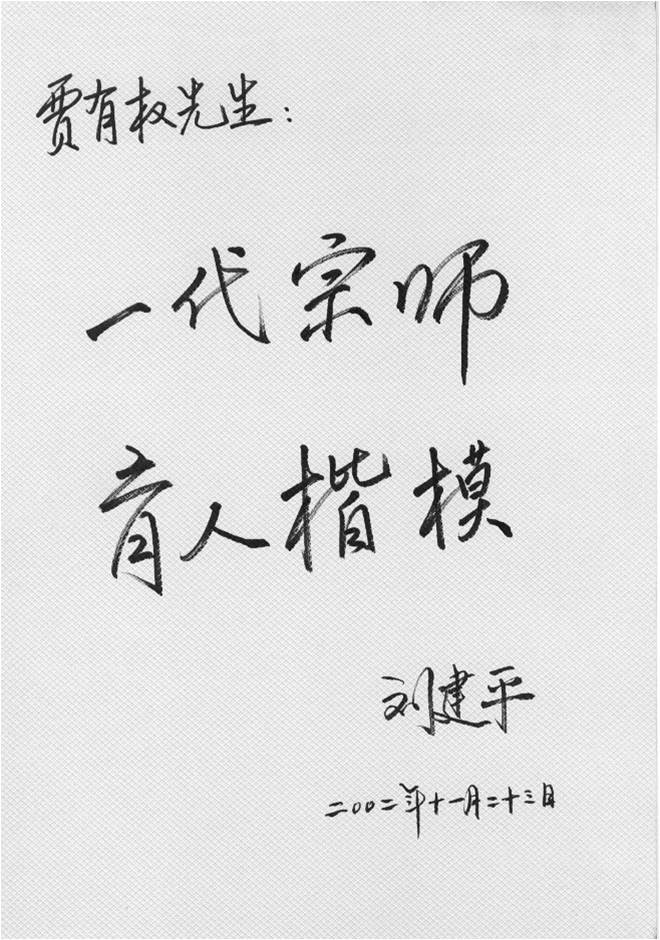 贾有权先生：
一代宗师
育人楷模
刘建平
二〇〇二年十一月二十三日